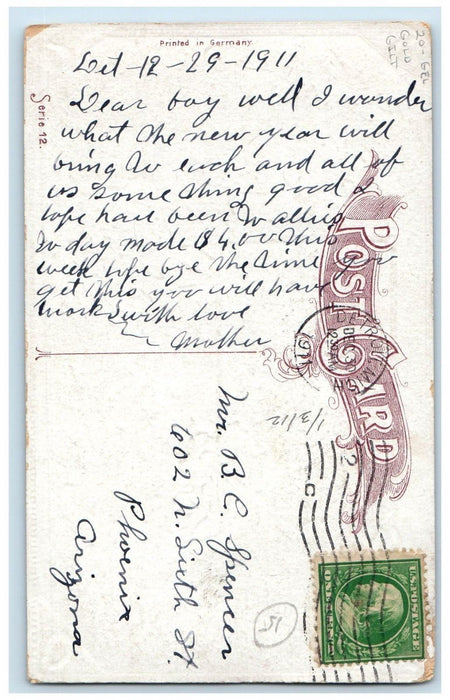 Printed in Germany
20-GEL
GOLD
GILT
Serie 12.
Det-12-29-1911
Dear boy well I wonder
what the new year will
bring to each and all of
us some thing good I
hope have been to allies
to day made $4.00 this
week hope bye the time you
get this you will have
work with love
Mother
POST CARD
DETROIT, MICH.
DEC 30
1911
1/3/12
Mr. B. C. Spencer
602 N. Sixth St.
Phoenix
Arizona
15
U.S. POSTAGE
ONE CENT